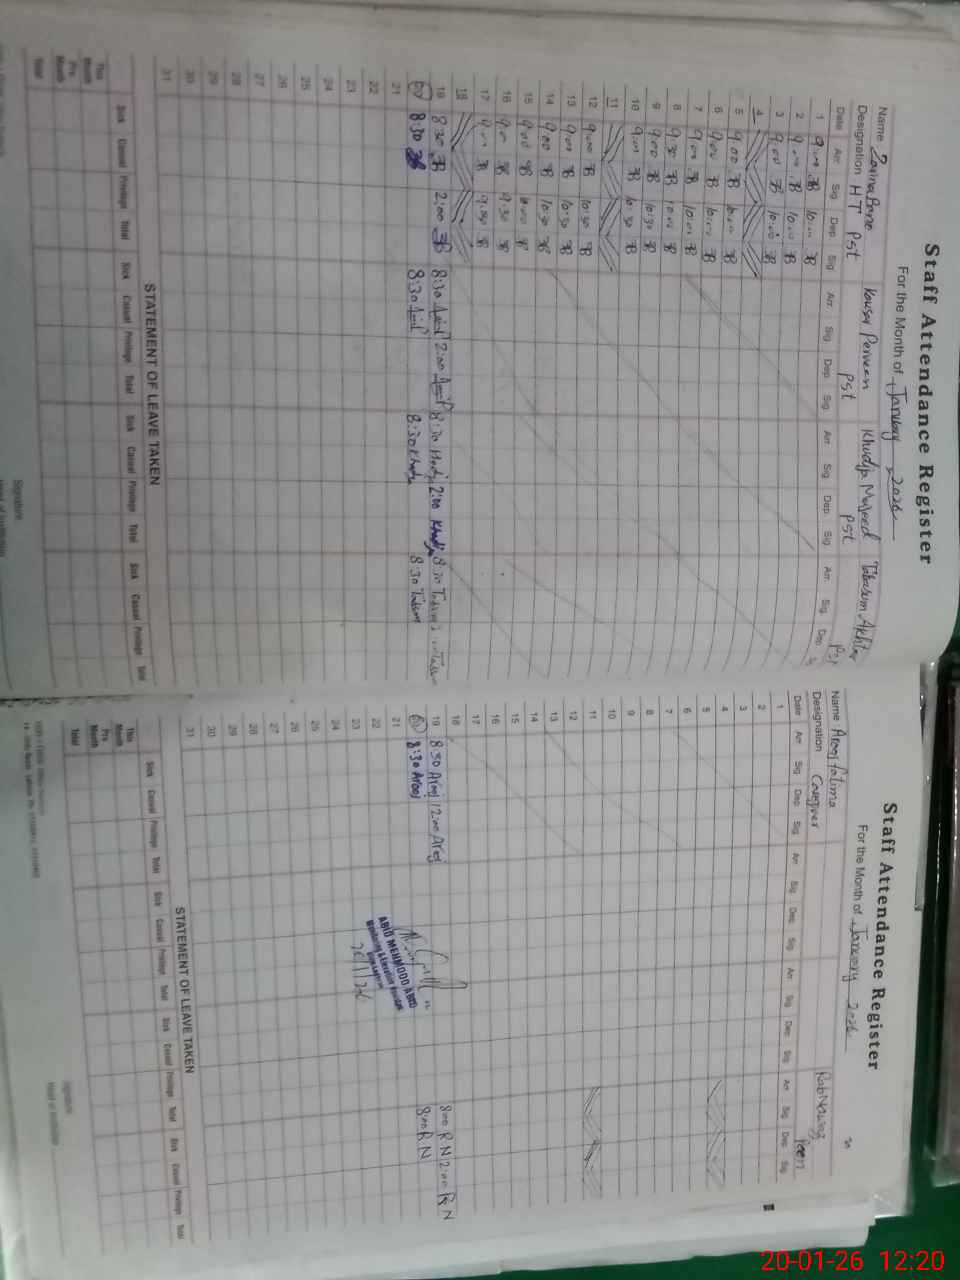 Staff Attendance Register
For the Month of January 2026
Name Kousar Perveen Khudija Majeed Tabasum Akhtar
Designation HT PST PST PST PST
Date Arr. Sig. Dep. Sig. Arr. Sig. Dep. Sig. Arr. Sig. Dep. Sig. Arr. Sig. Dep.
1 9:00 ZB 10:00 ZB
2 9:00 ZB 10:00 ZB
3 9:00 ZB 10:00 ZB
4
5 9:00 ZB 10:00 ZB
6 9:00 ZB 10:00 ZB
7 9:00 ZB 10:00 ZB
8 9:30 ZB 10:00 ZB
9 9:00 ZB 10:30 ZB
10 9:00 ZB 10:30 ZB
11
12 9:00 ZB 10:30 ZB
13 9:00 ZB 10:30 ZB
14 9:00 ZB 10:30 ZB
15 9:00 ZB ZB
16 9:00 ZB 9:30 ZB
17 9:00 ZB 9:30 ZB
18
19 8:30 ZB 2:00 ZB 8:30 2:00 8:30 Khadija 2:00 Khadija 8:30 Tabsum Tabsum
20 8:30 ZB 8:30 8:30 Khadija 8:30 Tabsum
21
22
23
24
25
26
27
28
29
30
31
STATEMENT OF LEAVE TAKEN
Sick Casual Privilege Total Sick Casual Privilege Total Sick Casual Privilege Total Sick Casual Privilege Total
This Month
Pre. Month
Total
Signature
Head of Institution
Staff Attendance Register
For the Month of January 2026
Name Arooj Fatima Rab Nawaz
Designation Caregiver Peon
Date Arr. Sig. Dep. Sig. Arr. Sig. Dep. Sig. Arr. Sig. Dep. Sig. Arr. Sig. Dep. Sig.
1
2
3
4
5
6
7
8
9
10
11
12
13
14
15
16
17
18
19 8:30 Arooj 12:00 Arooj 8:00 R N 2:00 R N
20 8:30 Arooj 8:00 R N
21
22
23
24
25
26
27
28
29
30
31
ABID MEHMOOD ABID
Monitoring & Evaluation
20/1/26
STATEMENT OF LEAVE TAKEN
Sick Casual Privilege Total Sick Casual Privilege Total Sick Casual Privilege Total Sick Casual Privilege Total
This Month
Pre. Month
Total
Signature
Head of Institution
20-01-26 12:20